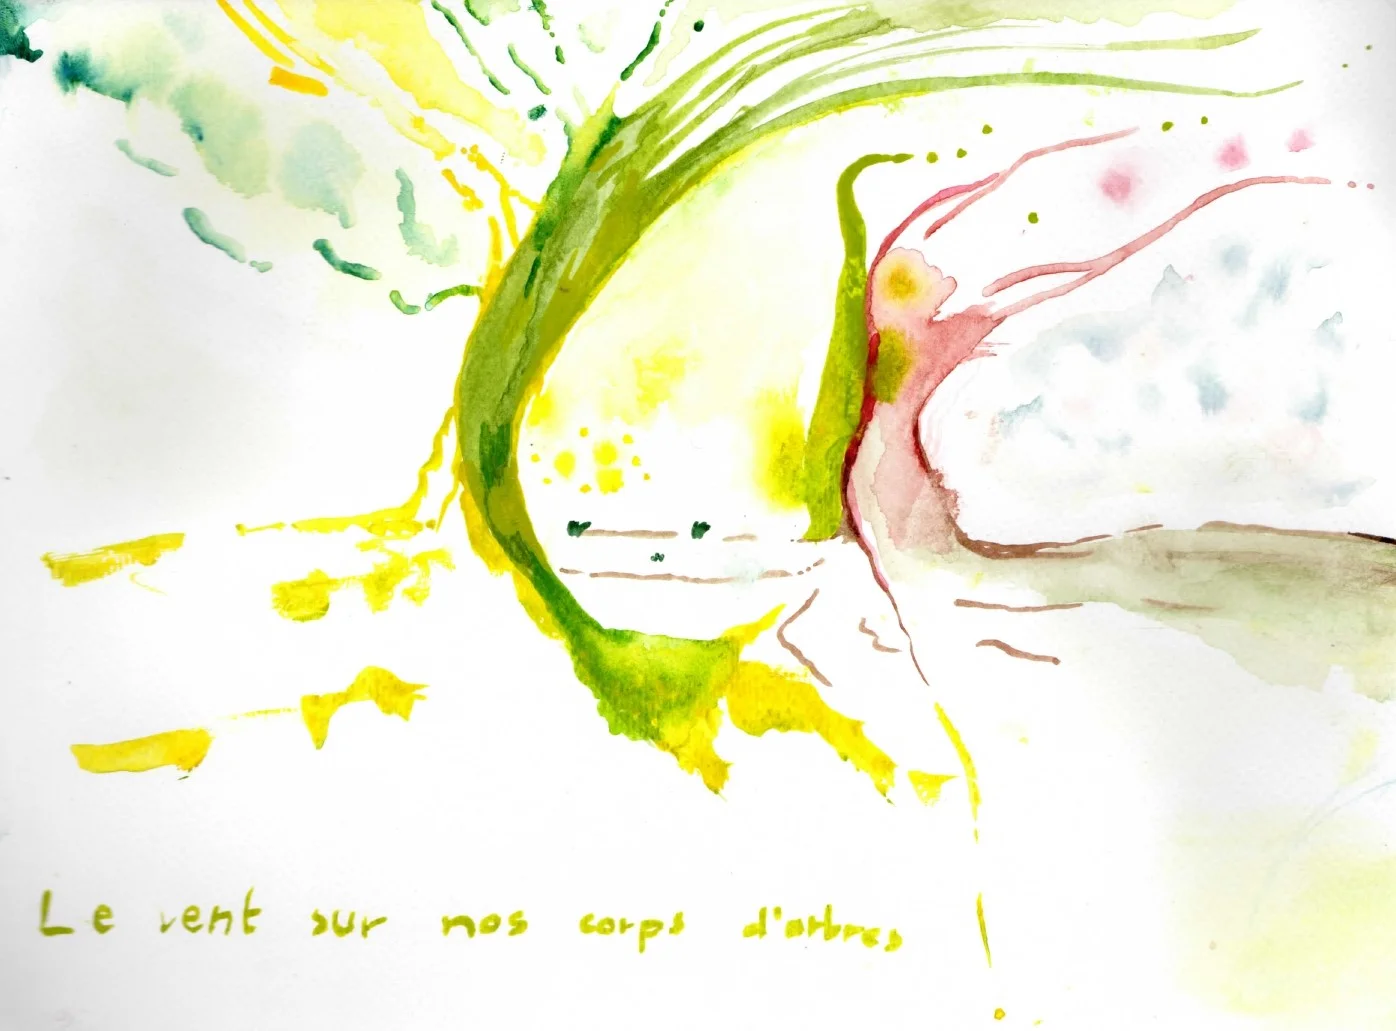 Le vent sur nos corps d'arbres